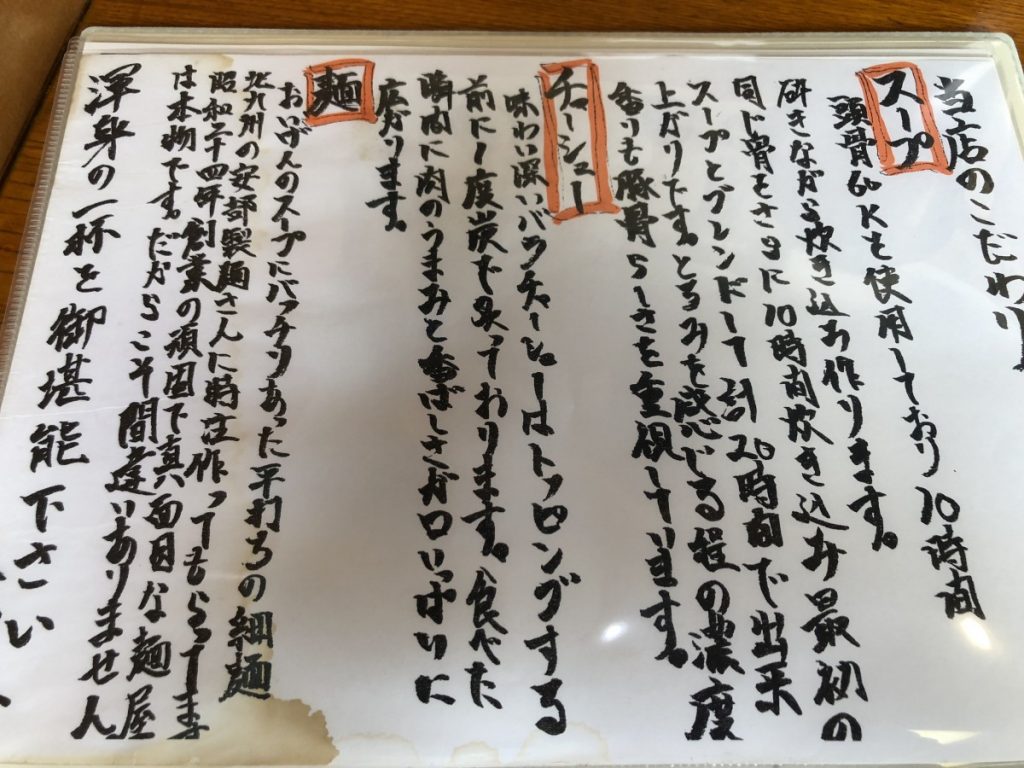 当店のこだわり
スープ
頭骨60Kを使用しており10時間
研きながら炊き込み作ります。
同じ骨をさらに10時間炊き込み最初の
スープとブレンドして計20時間で出来
上がりです。とろみを感じる程の濃度
香りも豚骨らしさを重視しています。
チャーシュー
味わい深いバラチャーシューはトッピングする
前に1度炭で炙っております。食べた
瞬間に肉のうまみと香ばしさが口いっぱいに
広がります。
麺
おいげんのスープにバッチリあった平打ちの細麺
北九州の安部製麺さんに特注作ってもらってます
昭和二十四年創業の頑固で真面目な麺屋
は本物です。だからこそ間違いありません
渾身の一杯を御堪能下さい